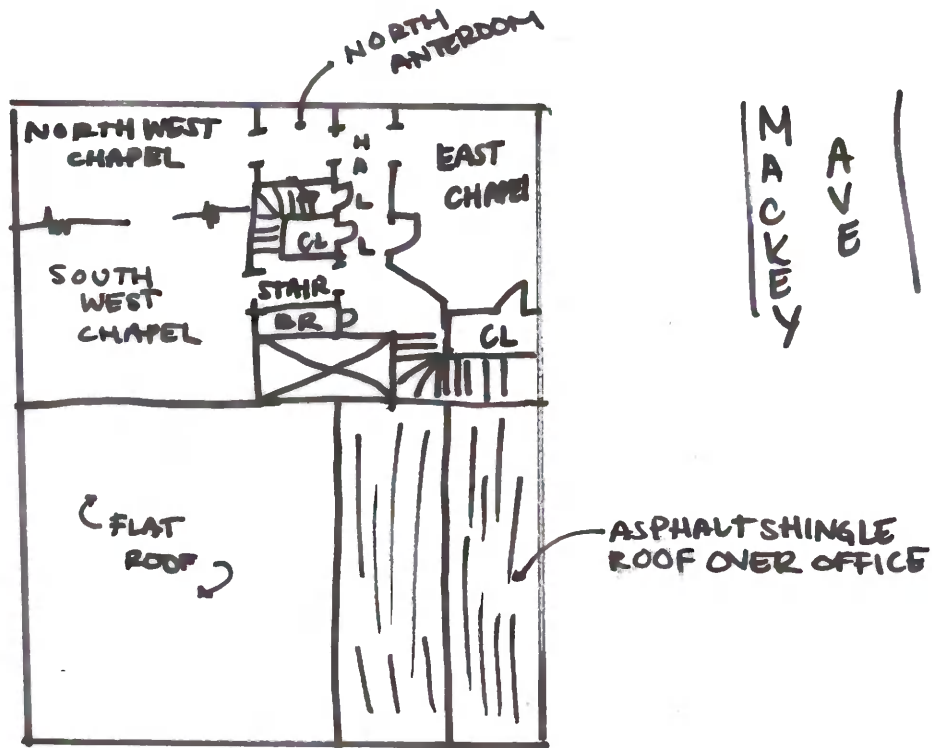 NORTH
ANTERDOM
NORTH WEST
CHAPEL
HALL
EAST
CHAPEL
MACKEY
AVE
CL
SOUTH
WEST
CHAPEL
STAIR
BR
CL
FLAT
ROOF
ASPHALT SHINGLE
ROOF OVER OFFICE